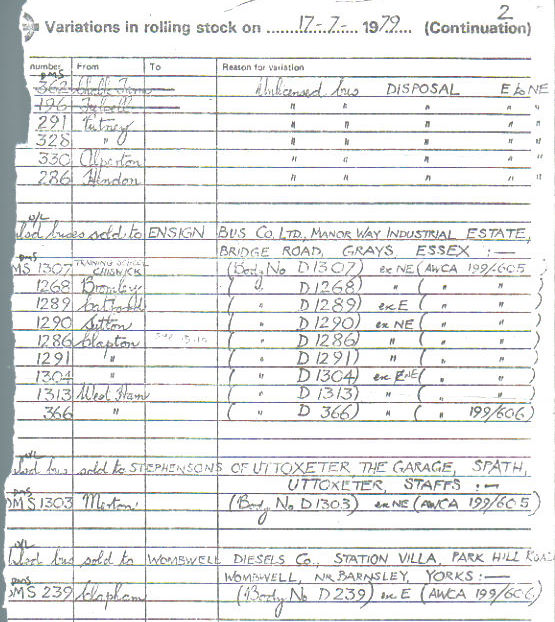 2
Variations in rolling stock on 17-7- 1979 (Continuation)
number From To Reason for variation
DMS
362 Chalk Farm Unlicensed bus DISPOSAL E to NE
196 Fulwell " " " " "
291 Putney " " " " "
328 " " " " " "
330 Alperton " " " " "
286 Hendon " " " " "
U/L
buses sold to ENSIGN BUS Co. LTD., MANOR WAY INDUSTRIAL ESTATE,
BRIDGE ROAD, GRAYS ESSEX :—
DMS TRAINING SCHOOL
MS 1307 CHISWICK (Body No D1307) ex NE (AWCA 199/605
1268 Bromley ( " D1268) " ( " )
1289 ( " D1289) ex E ( " )
1290 Sutton ( " D1290) ex NE ( " )
1286 Clapton ( " D1286) " ( " )
1291 " ( " D1291) " ( " )
1304 " ( " D1304) ex NE ( " )
1313 West Ham ( " D1313) " ( " )
366 " ( " D 366) " ( " 199/606)
U/L
bus sold to STEPHENSONS OF UTTOXETER, THE GARAGE, SPATH,
UTTOXETER, STAFFS :—
DMS
DMS 1303 Merton (Body No D1303) ex NE (AWCA 199/605)
U/L
bus sold to WOMBWELL DIESELS Co., STATION VILLA, PARK HILL ROAD
WOMBWELL, NR BARNSLEY, YORKS :—
DMS
DMS 239 Clapham (Body No D239) ex E (AWCA 199/606)